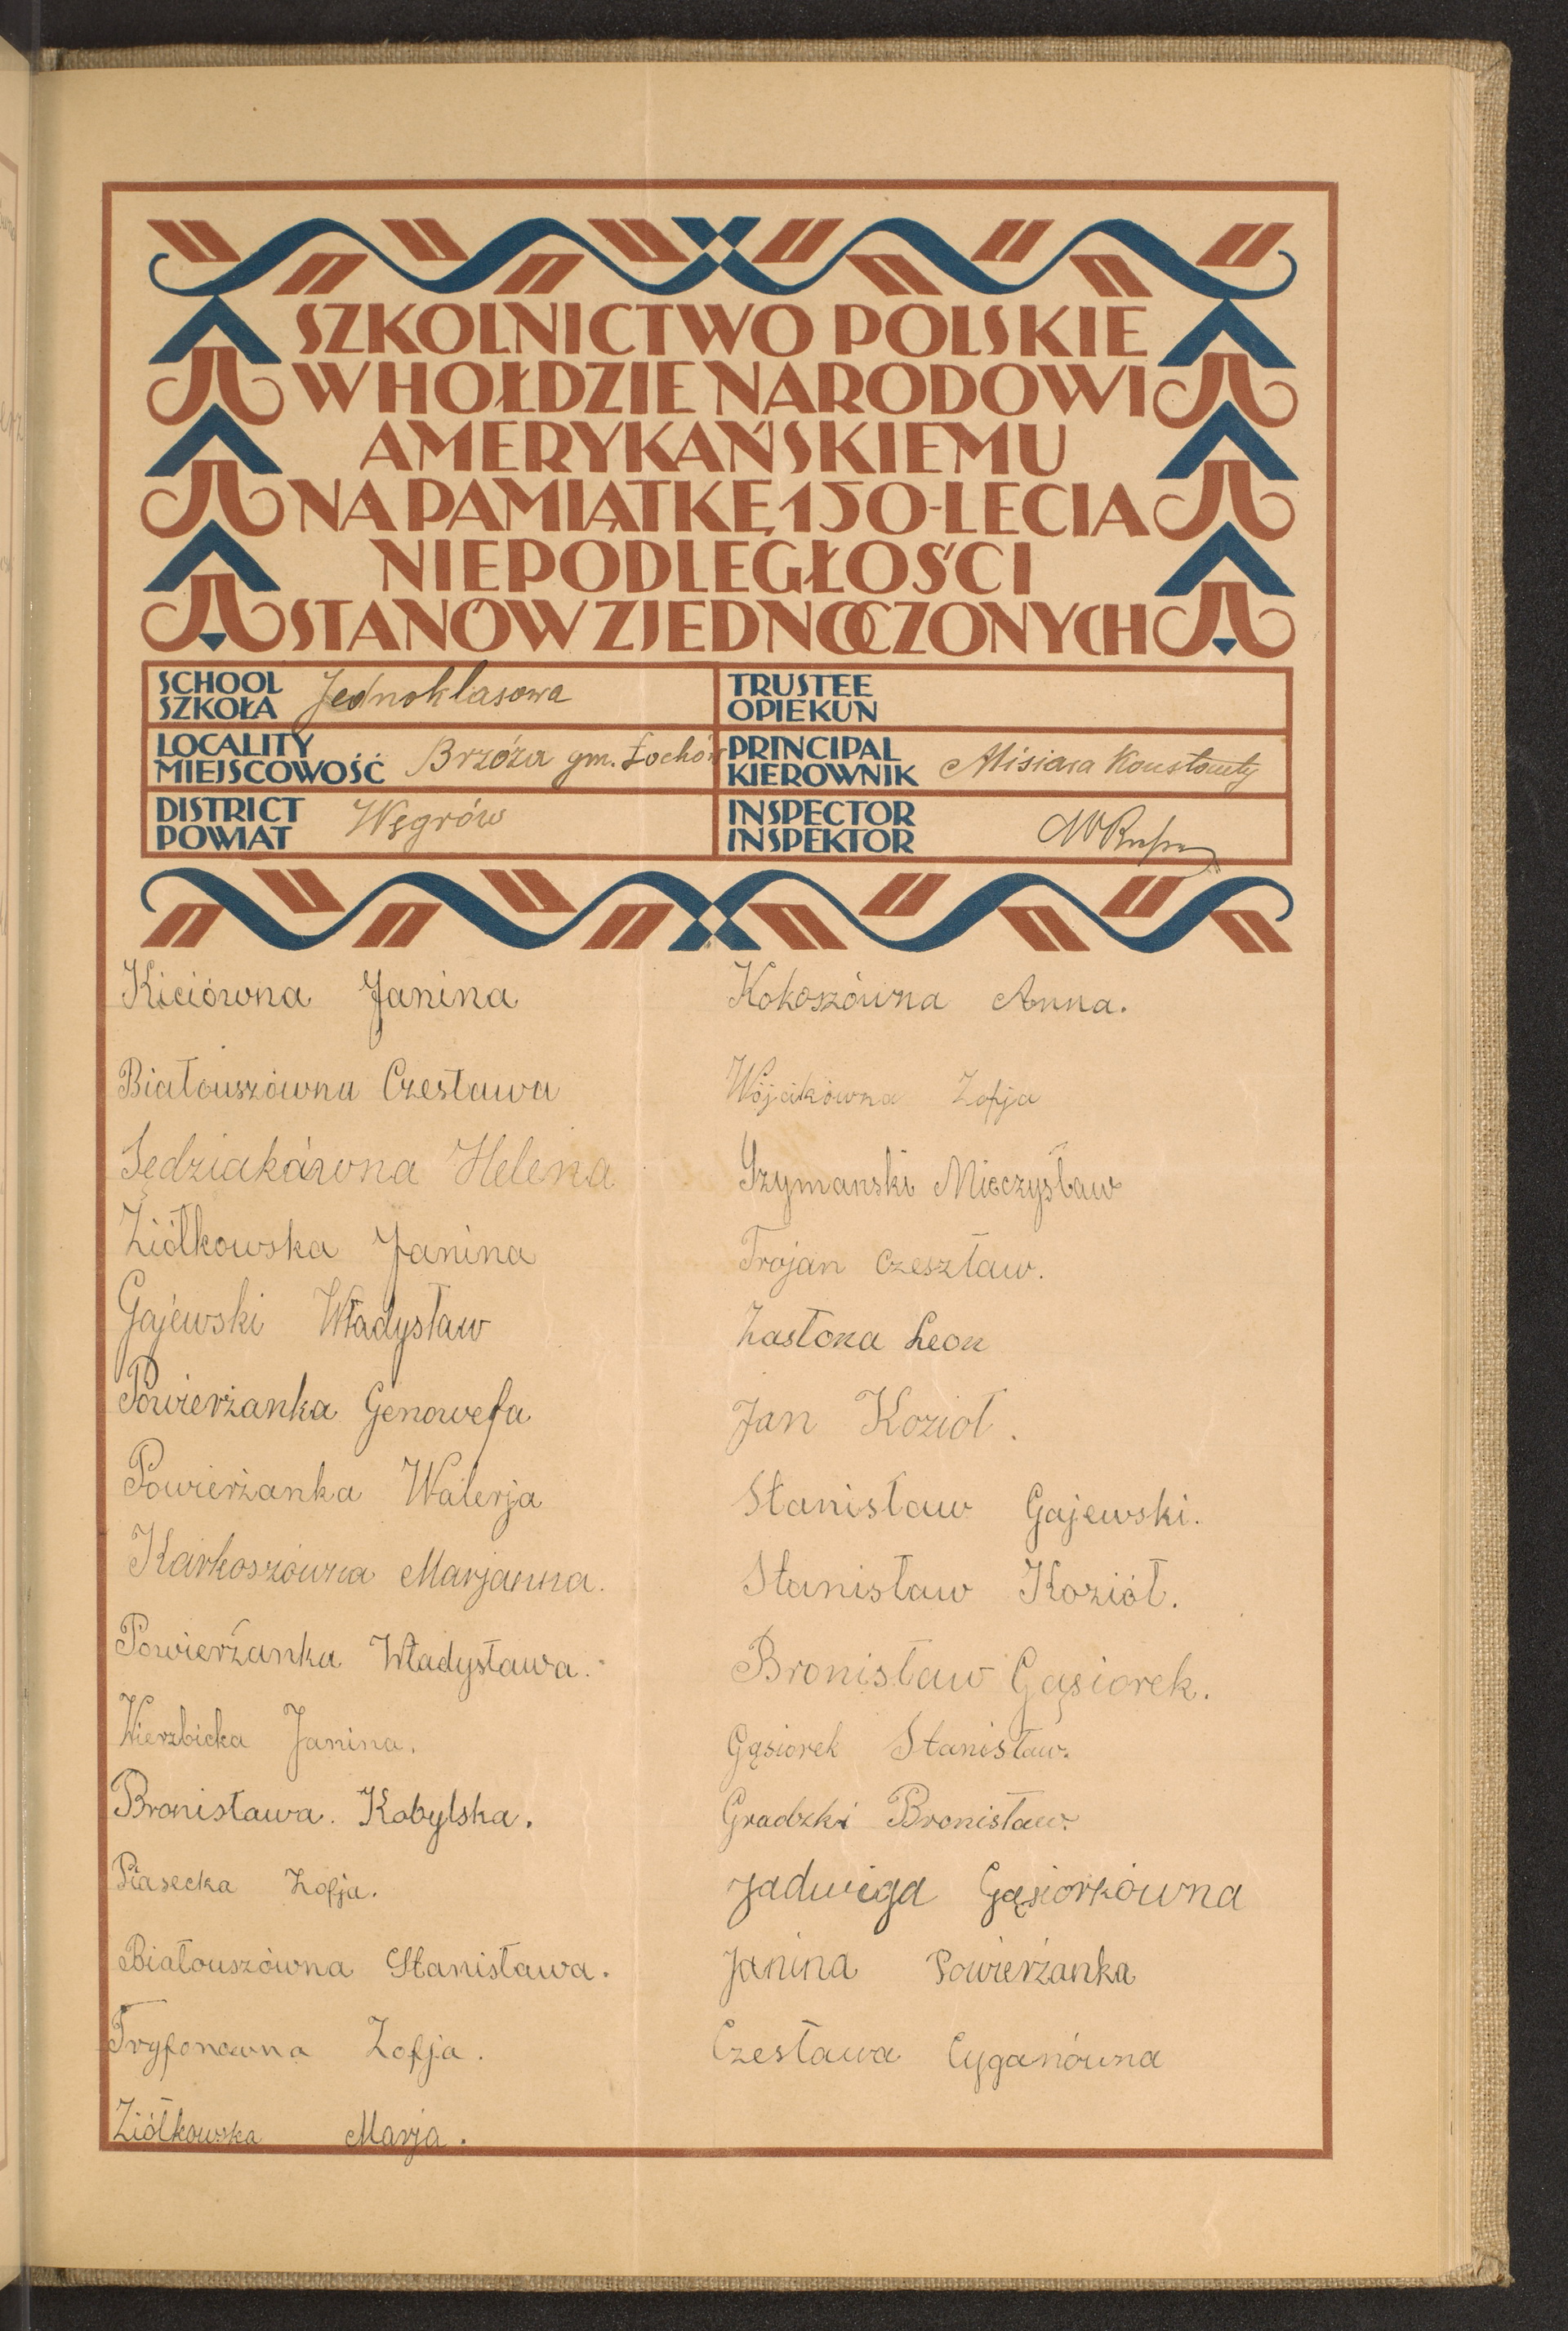 SZKOLNICTWO POLSKIE
W HOŁDZIE NARODOWI
AMERYKAŃSKIEMU
NA PAMIĄTKĘ 150-LECIA
NIEPODLEGŁOŚCI
STANÓW ZJEDNOCZONYCH
SCHOOL
SZKOŁA Jednoklasowa
TRUSTEE
OPIEKUN
LOCALITY
MIEJSCOWOŚĆ Brzóza gm. Łochów
PRINCIPAL
KIEROWNIK Misiara Konstanty
DISTRICT
POWIAT Węgrów
INSPECTOR
INSPEKTOR
Kiciówna Janina
Białouszówna Czesława
Sędziakówna Helena
Ziółkowska Janina
Gajewski Władysław
Powierżanka Genowefa
Powierżanka Walerja
Karkoszówna Marjanna.
Powierżanka Władysława.
Wierzbicka Janina.
Bronisława. Kobylska.
Piasecka Zofja.
Białouszówna Stanisława.
Tryfonowna Zofja.
Ziółkowska Marja.
Kokoszówna Anna.
Wójcikówna Zofja
Szymanski Mieczysław
Trojan Czeszław.
Zasłona Leon
Jan Kozioł.
Stanisław Gajewski.
Stanisław Koziół.
Bronisław Gąsiorek.
Gąsiorek Stanisław.
Gradzki Bronisław.
Jadwiga Gąsiorkówna
Janina Powierżanka
Czesława Cyganówna